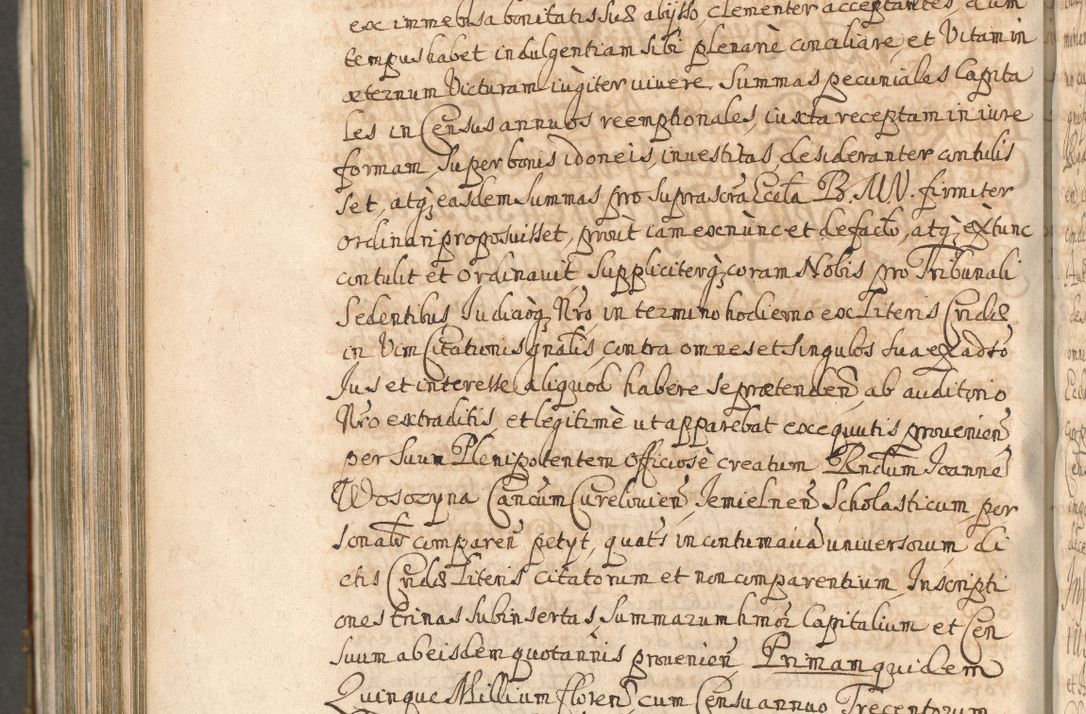 ex immensa bonitatis suæ abysso clementer acceptantes, dum
tempus habet indulgentiam sibi plenariè conciliare, et Vitam in
æternum Victuram iùgiter vivere, Summas pecuniales Capita
les in Census annuos reemptionales, iuxta receptam in iure
formam, super bonis idoneis, investitas desideranter contulis
set, atq; easdem Summas pro suprascrã Eccła B. M. V. firmiter
ordinari proposuisset, proùt iam ex nùnc et de facto, atq; ex tunc
contulit et ordinavit, Suppliciterq; coram Nobis pro Tribunali
Sedentibus Judicioq; Nro in termino hodierno ex Literis Cridæ
in Vim Citationis gnalis, contra omnes et singulos sua ex adso
Jus et interesse aliquod habere se prætenden̄, ab auditorio
Nro extraditis, et legitimè ut apparebat exequutis provenien̄
per Suum Plenipotentem officiosè creatum Rndum Joannē
Wosozyna Cancum Curelovien̄, Jemielnen̄ Scholasticum, per
sonalr comparen̄ petyt, quats in contumacia universorum di
ctis Cridæ Literis citatorum et non comparentium Inscripti
ones trinas subinsertas, Summarum hmoi Capitalium et Cen
suum ab eisdem quotannis provenien̄ Primam quidem
Quinque Millium floren̄ cum Censu annuo Trecentorum